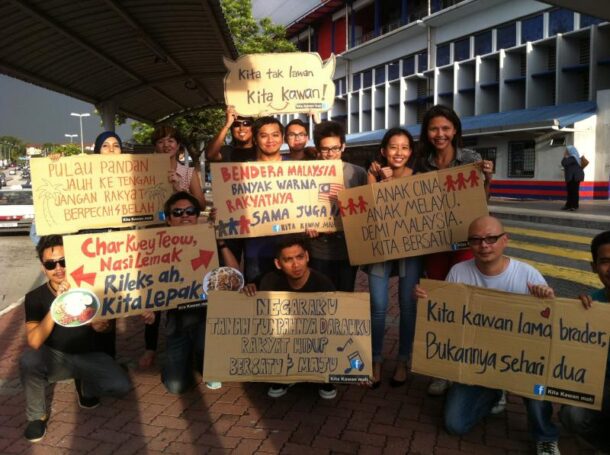 Kita tak lawan
Kita kawan!
Kita Kawan mah
PULAU PANDAN
JAUH KE TENGAH,
JANGAN RAKYAT
BERPECAH-BELAH
Kita Kawan mah
BENDERA MALAYSIA
BANYAK WARNA
RAKYATNYA
SAMA JUGA!!
Kita Kawan mah
ANAK CINA,
ANAK MELAYU.
DEMI MALAYSIA.
KITA BERSATU
Kita Kawan mah
Char Kuey Teow,
Nasi Lemak
Rileks ah,
Kita Lepak
NEGARAKU
TANAH TUMPAHNYA DARAHKU
RAKYAT HIDUP
BERSATU & MAJU
Kita Kawan mah
Kita kawan lama brader,
Bukannya sehari dua
Kita Kawan mah